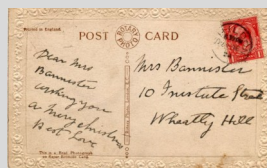 Printed in England
POST CARD
ROTARY PHOTO
Dear Mrs
Bannister
wishing you
a merry christmas
Best Love
Mrs Bannister
10 Institute Street
Wheatly Hill
This is a Real Photograph